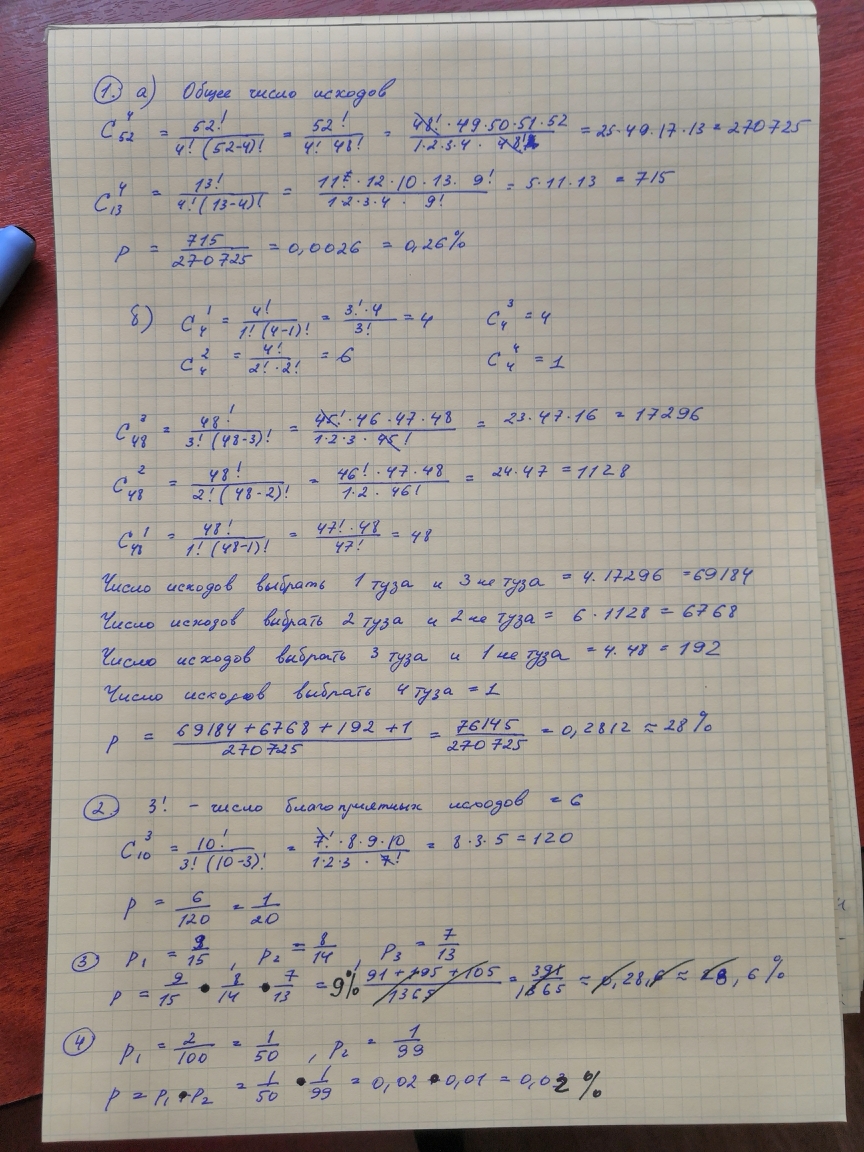 1. а) Общее число исходов
C₅₂⁴ = 52!/4!(52-4)! = 52!/4! 48! = 48!·49·50·51·52/1·2·3·4·48! = 25·49·17·13 = 270725
C₁₃⁴ = 13!/4!(13-4)! = 11·12·10·13·9!/1·2·3·4·9! = 5·11·13 = 715
P = 715/270725 = 0,0026 = 0,26%
б) C₄¹ = 4!/1!(4-1)! = 3!·4/3! = 4 C₄³ = 4
C₄² = 4!/2!·2! = 6 C₄⁴ = 1
C₄₈³ = 48!/3!(48-3)! = 45!·46·47·48/1·2·3·45! = 23·47·16 = 17296
C₄₈² = 48!/2!(48-2)! = 46!·47·48/1·2·46! = 24·47 = 1128
C₄₈¹ = 48!/1!(48-1)! = 47!·48/47! = 48
Число исходов выбрать 1 туза и 3 не туза = 4·17296 = 69184
Число исходов выбрать 2 туза и 2 не туза = 6·1128 = 6768
Число исходов выбрать 3 туза и 1 не туза = 4·48 = 192
Число исходов выбрать 4 туза = 1
P = 69184+6768+192+1/270725 = 76145/270725 = 0,2812 ≈ 28%
2. 3! - число благоприятных исходов = 6
C₁₀³ = 10!/3!(10-3)! = 7!·8·9·10/1·2·3·7! = 8·3·5 = 120
P = 6/120 = 1/20
3 P₁ = 9/15, P₂ = 8/14, P₃ = 7/13
P = 9/15 · 8/14 · 7/13 = 9% 91+195+105/1365 = 391/1365 ≈ 0,286 ≈ 28,6%
4 P₁ = 2/100 = 1/50, P₂ = 1/99
P = P₁·P₂ = 1/50 · 1/99 = 0,02·0,01 = 0,02%